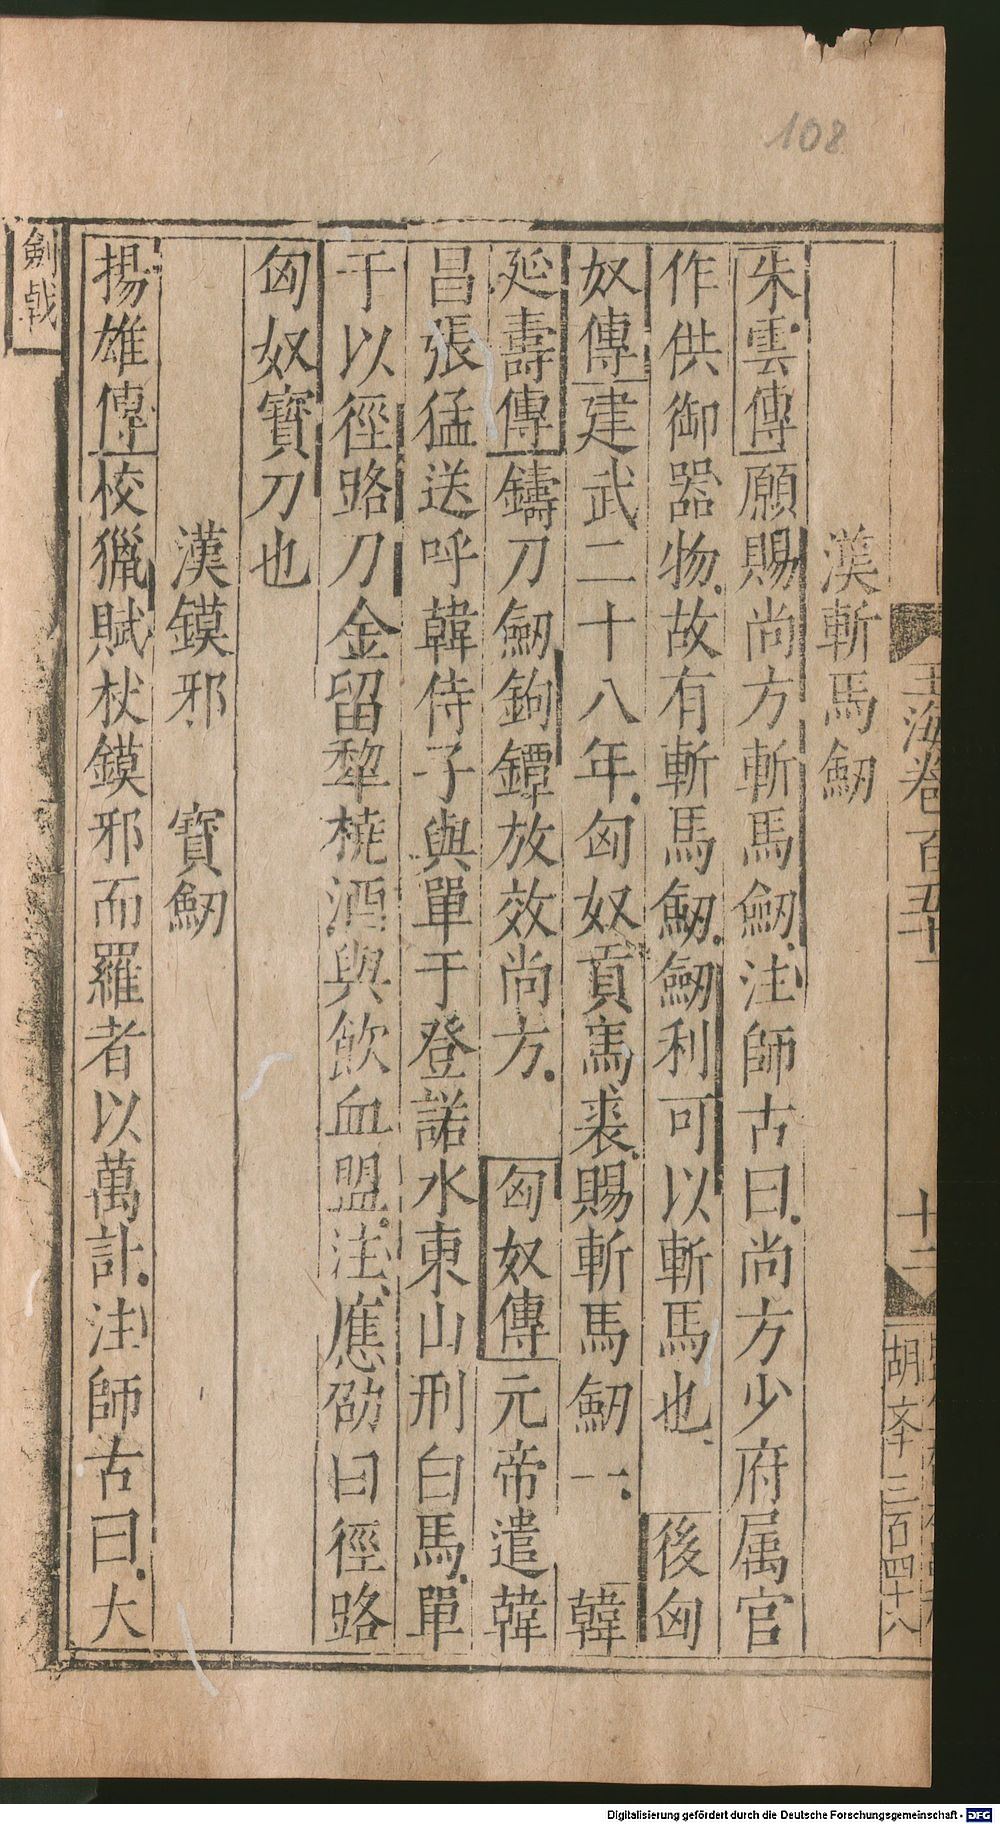 108
玉海卷百五十一
十二
胡文三百四十八
漢斬馬劒
朱雲傳願賜尚方斬馬劒注師古曰尚方少府属官
作供御器物故有斬馬劒劒利可以斬馬也 後匈
奴傳建武二十八年匈奴貢馬裘賜斬馬劒一 韓
延壽傳鑄刀劒鉤鐔放效尚方 匈奴傳元帝遣韓
昌張猛送呼韓侍子與單于登諾水東山刑白馬單
于以徑路刀金留犂撓酒與飲血盟注應劭曰徑路
匈奴寶刀也
漢鏌邪 寶劒
揚雄傳校獵賦杖鏌邪而羅者以萬計注師古曰大
劍戟
Digitalisierung gefördert durch die Deutsche Forschungsgemeinschaft - DFG